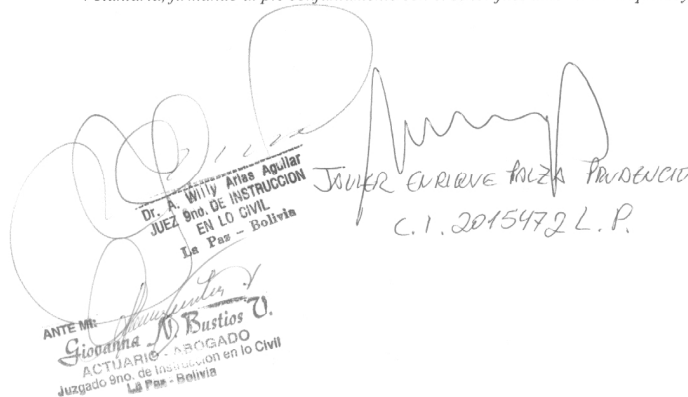 Dr. A. Willy Arias Aguilar
JUEZ 9no. DE INSTRUCCION
EN LO CIVIL
La Paz - Bolivia
JAVIER ENRIQUE PALZA PRUDENCIO
C.I. 2015472 L.P.
ANTE MI:
Giovanna N. Bustios V.
ACTUARIO - ABOGADO
Juzgado 9no. de Instrucción en lo Civil
La Paz - Bolivia